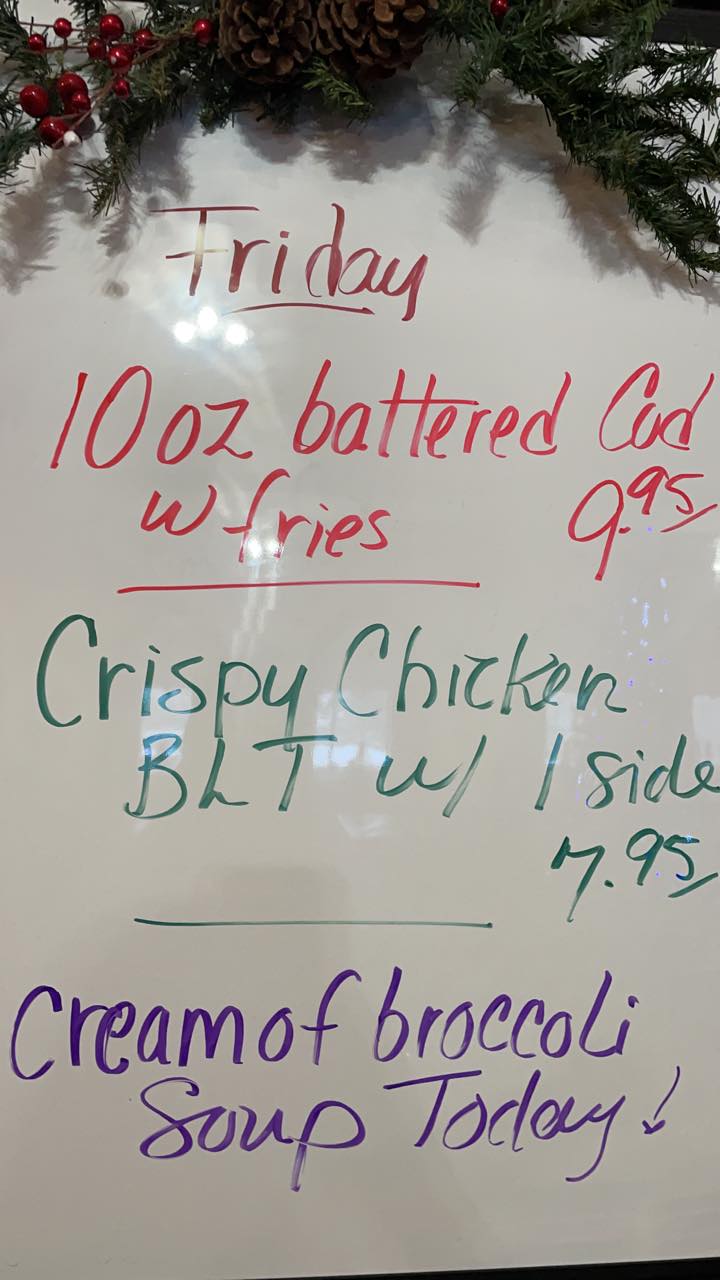 Friday
10 oz battered Cod
w fries 9.95
Crispy Chicken
BLT w/ 1 side
7.95
Cream of broccoli
Soup Today!